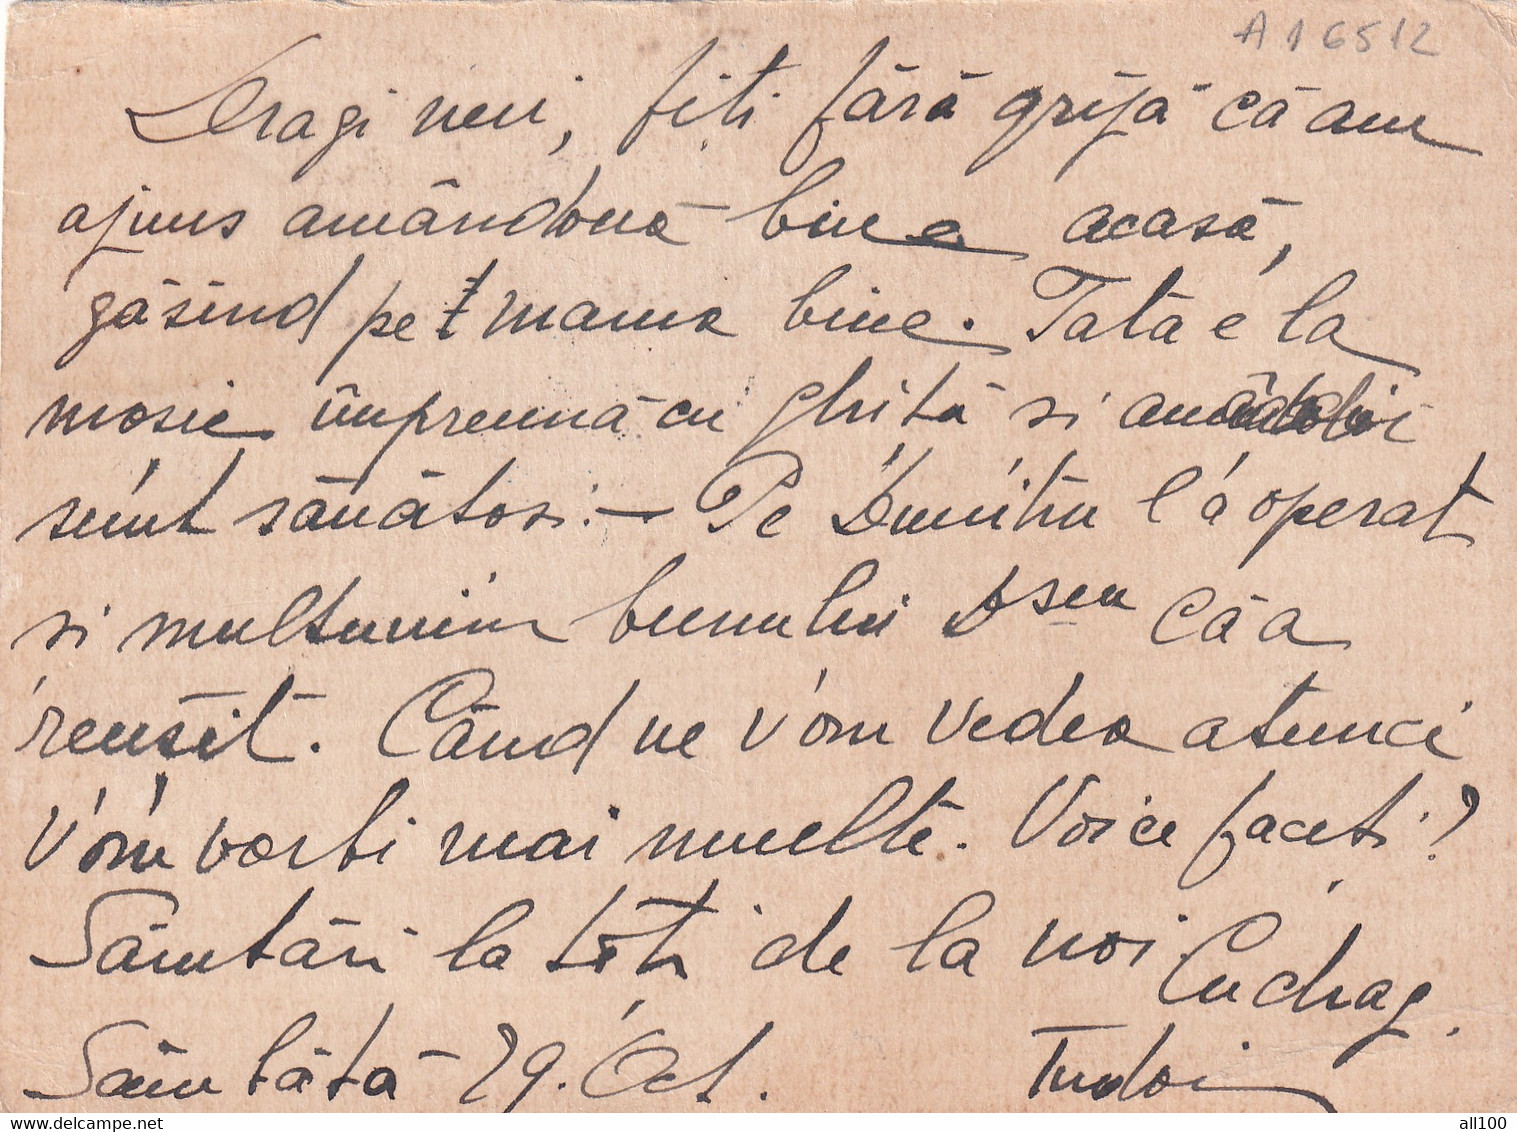 A16512
Dragi mei, fiți fără grijă că am
ajuns amândouă bine acasă,
găsind pe mama bine. Tata e la
mosie împreună cu Ghiță si amândoi
sunt sănătosi. — Pe Dumitru l'a operat
si multumim bunului Dzeu că a
reușit. Când ne vom vedea atunci
vom vorbi mai multe. Voi ce faceți?
Sămtări la toți de la noi
Cu drag,
Sâmbătă 29. Oct. Tudor
all100